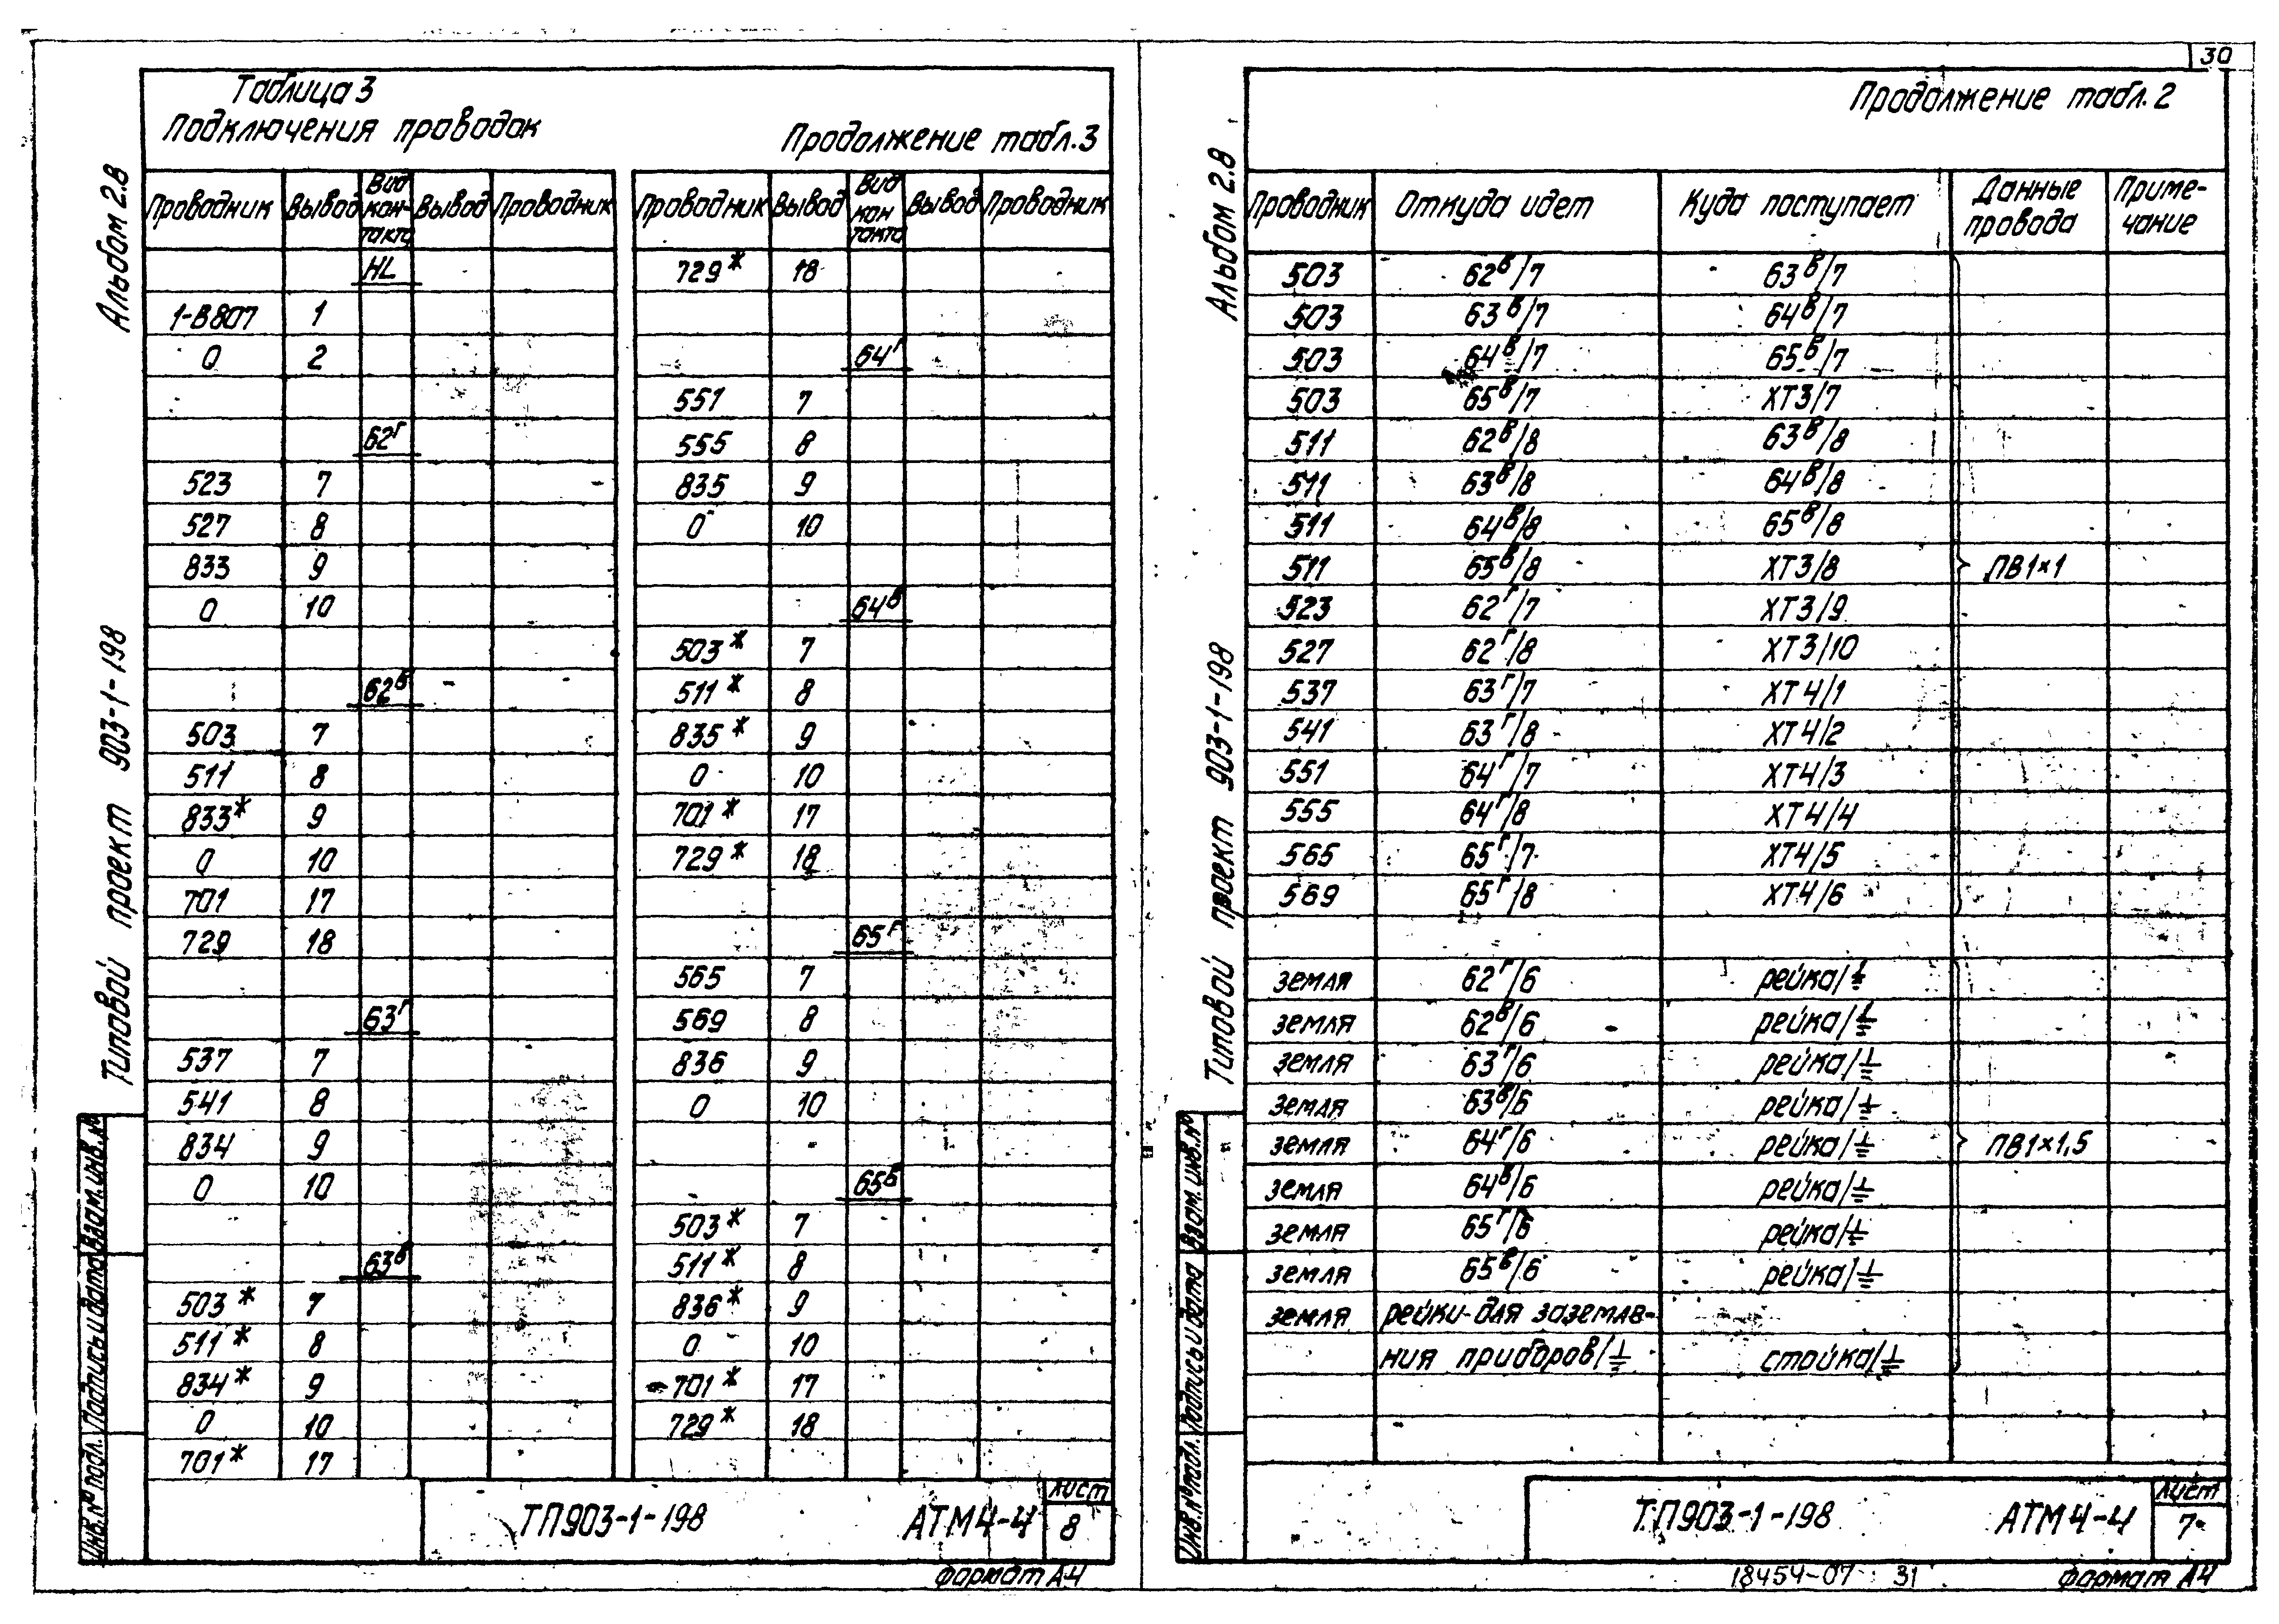 30
Альбом 2.8
Типовой проект 903-1-198
Инв.№ подл. Подпись и дата Взам.инв.№
Таблица 3
Подключения проводок
Продолжение табл.3
Проводник Вывод Вид контакта Вывод Проводник
HL
1-В807 1
0 2
62г
523 7
527 8
833 9
0 10
62в
503 7
511 8
833* 9
0 10
701 17
729 18
63г
537 7
541 8
834 9
0 10
63в
503* 7
511* 8
834* 9
0 10
701* 17
Проводник Вывод Вид контакта Вывод Проводник
729* 18
64г
551 7
555 8
835 9
0 10
64в
503* 7
511* 8
835* 9
0 10
701* 17
729* 18
65г
565 7
569 8
836 9
0 10
65в
503* 7
511* 8
836* 9
0 10
701* 17
729* 18
ТП903-1-198 АТМ4-4 Лист 8
Формат А4
Альбом 2.8
Типовой проект 903-1-198
Инв.№ подл. Подпись и дата Взам.инв.№
Продолжение табл.2
Проводник Откуда идет Куда поступает Данные провода Примечание
503 62в/7 63в/7
503 63в/7 64в/7
503 64в/7 65в/7
503 65в/7 ХТ3/7
511 62в/8 63в/8
511 63в/8 64в/8
511 64в/8 65в/8
511 65в/8 ХТ3/8 ПВ1×1
523 62г/7 ХТ3/9
527 62г/8 ХТ3/10
537 63г/7 ХТ4/1
541 63г/8 ХТ4/2
551 64г/7 ХТ4/3
555 64г/8 ХТ4/4
565 65г/7 ХТ4/5
569 65г/8 ХТ4/6
земля 62г/6 рейка/⏚
земля 62в/6 рейка/⏚
земля 63г/6 рейка/⏚
земля 63в/6 рейка/⏚
земля 64г/6 рейка/⏚ ПВ1×1,5
земля 64в/6 рейка/⏚
земля 65г/6 рейка/⏚
земля 65в/6 рейка/⏚
земля рейки для заземле-
ния приборов/⏚ стойка/⏚
ТП903-1-198 АТМ4-4 Лист 7
18454-07 31 Формат А4